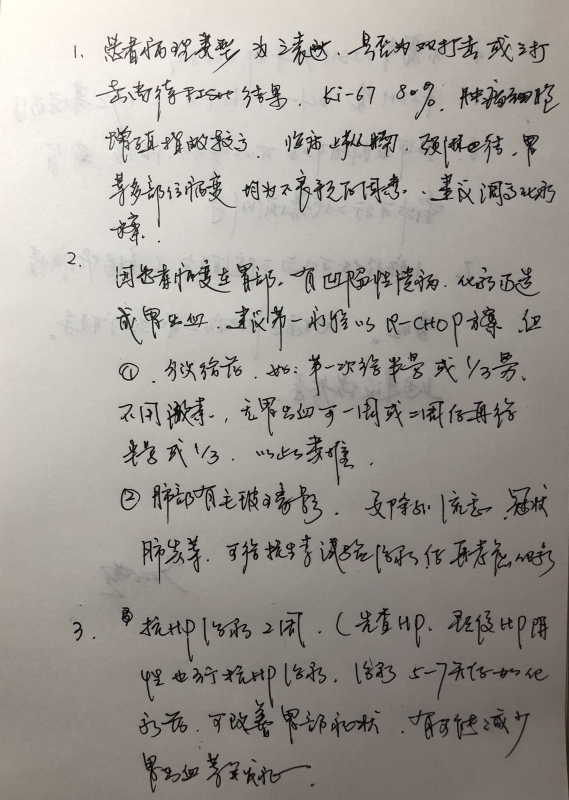 1. 患者病理类型为三表达，是否为双打击或三打
击尚待FISH结果，Ki-67 80%，肿瘤细胞
增殖指数较高，临床上纵膈，颈淋巴结，胃
等多部位病变均为不良预后因素，建议调高化疗
方案。
2.
因患者病变在胃部，有凹陷性溃疡，化疗可造
成胃出血，建议第一疗程以R-CHOP方案，但
① 分次给药，如：第一次给半量或1/3量，
不用激素，无胃出血可一周或二周后再给
半量或1/3，以此类推，
② 肺部有毛玻璃影，要除外流感，冠状
肺炎等，可给抗生素减轻治疗后再考虑化疗
3. 抗HP治疗2周，（先查HP，即使HP阴
性也可行抗HP治疗，治疗5-7天后加化
疗药，可改善胃部症状，有可能减少
胃出血等并发症。